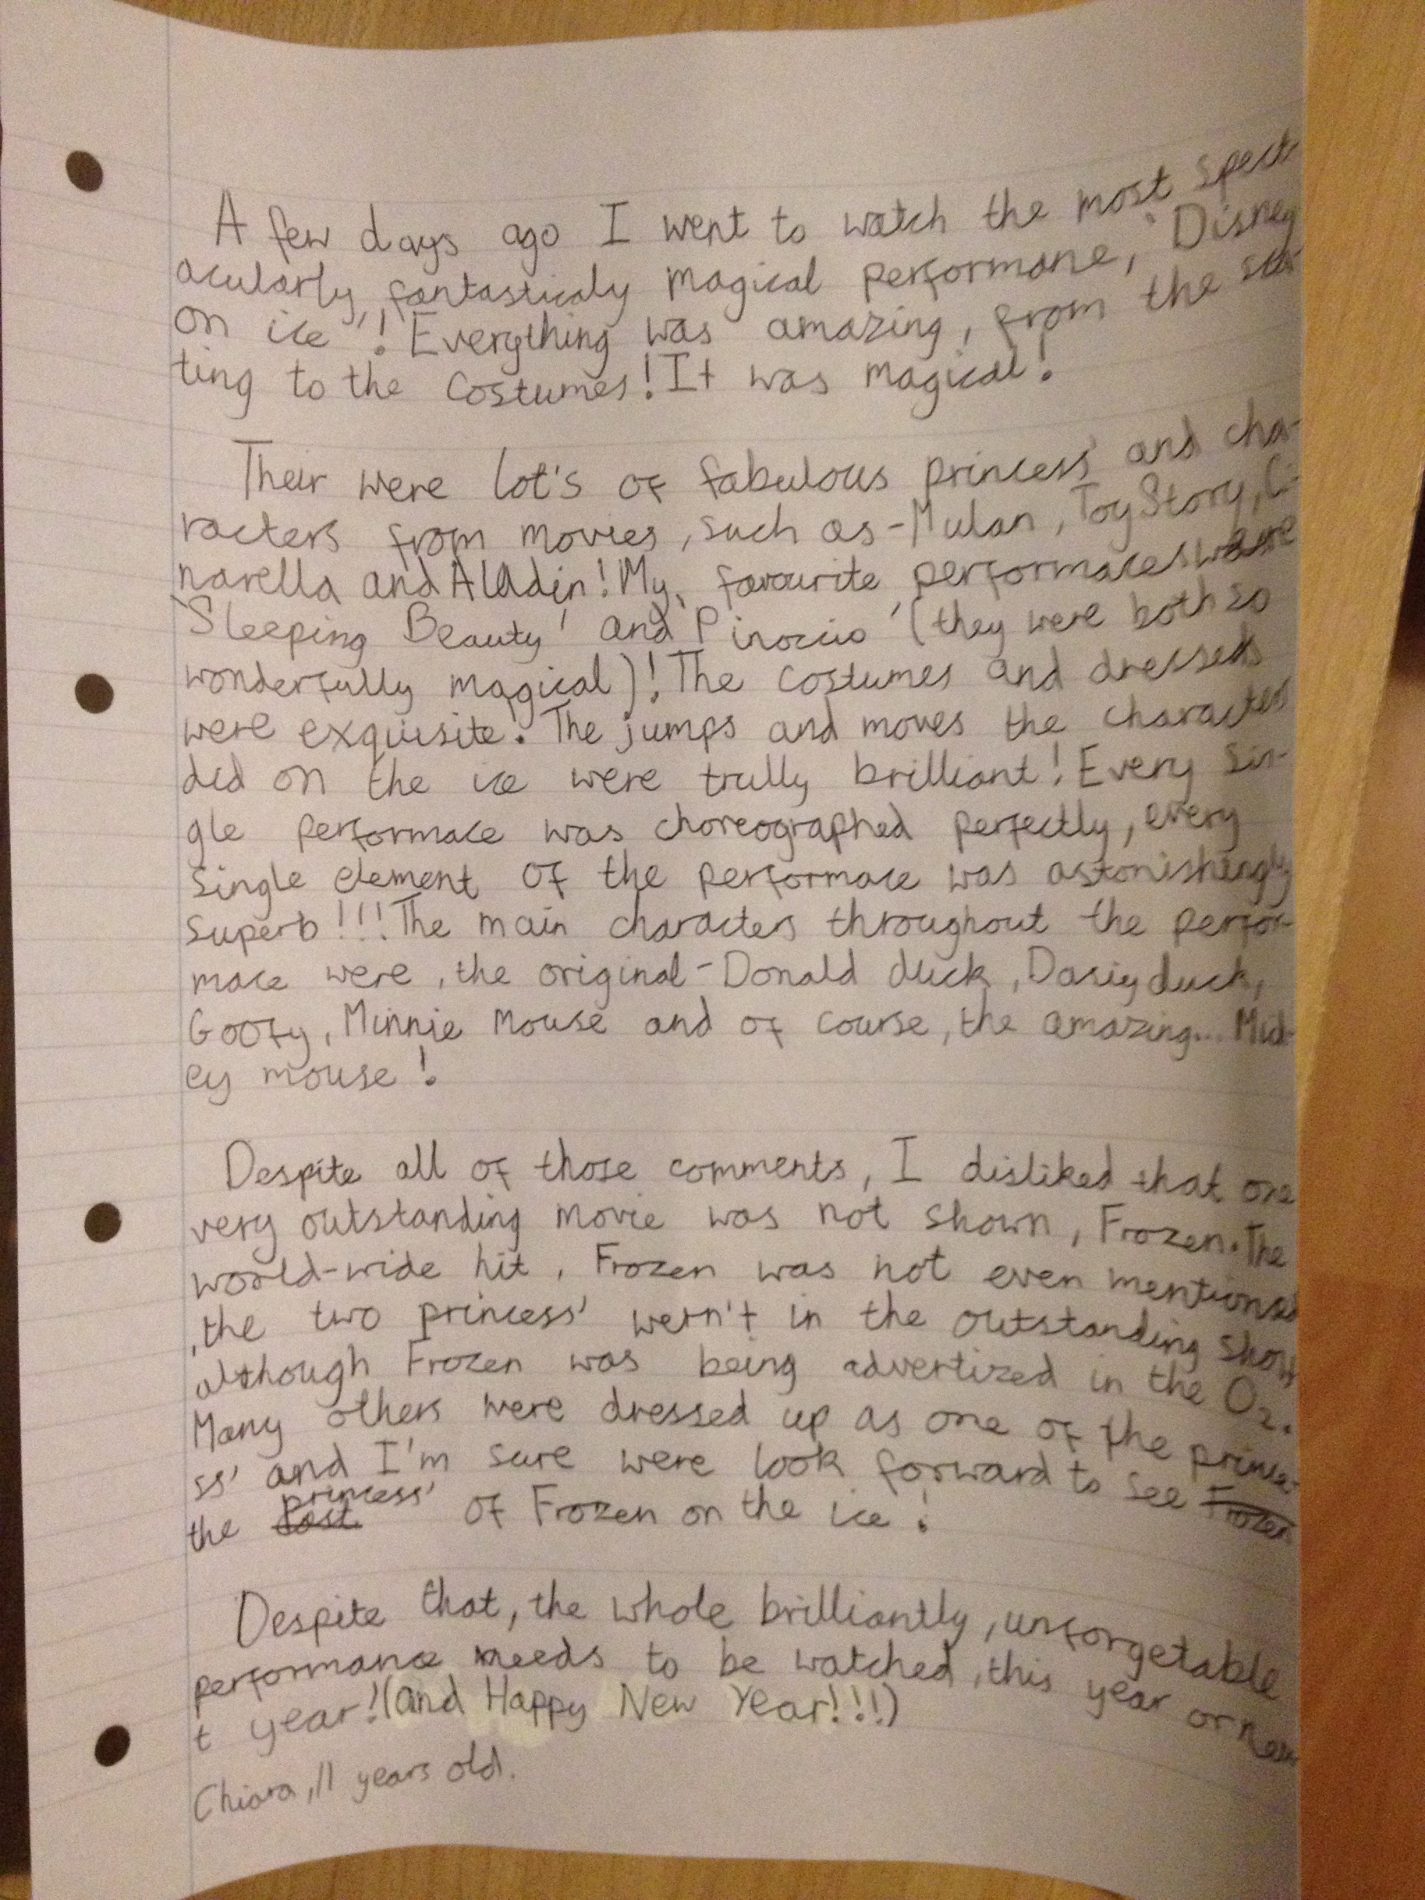 A few days ago I went to watch the most spect
acularly, fantasticaly magical performane, 'Disney
on ice'! Everything was amazing, from the star
ting to the costumes! It was magical!
Their were lot's of fabulous princess' and cha-
racters from movies, such as - Mulan, Toy Story, Ci-
narella and Aladin! My favourite performaces were
'Sleeping Beauty' and 'Pinoccio' (they were both so
wonderfully magical)! The costumes and dresses
were exquisite! The jumps and moves the characters
did on the ice were trully brilliant! Every sin-
gle performace was choreographed perfectly, every
single element of the performace was astonishingly
superb!!! The main characters throughout the perfor-
mace were, the original - Donald duck, Dasiy duck,
Goofy, Minnie Mouse and of course, the amazing... Mick-
ey mouse!
Despite all of those comments, I disliked that one
very outstanding movie was not shown, Frozen. The
world-wide hit, Frozen was not even mentioned
, the two princess' wern't in the outstanding show
although Frozen was being advertized in the O2.
Many others were dressed up as one of the prince-
ss' and I'm sure were look forward to see Frozen
the cast princess' of Frozen on the ice!
Despite that, the whole brilliantly, unforgetable
performance needs to be watched, this year or nex
t year! (and Happy New Year!!!)
Chiara, 11 years old.